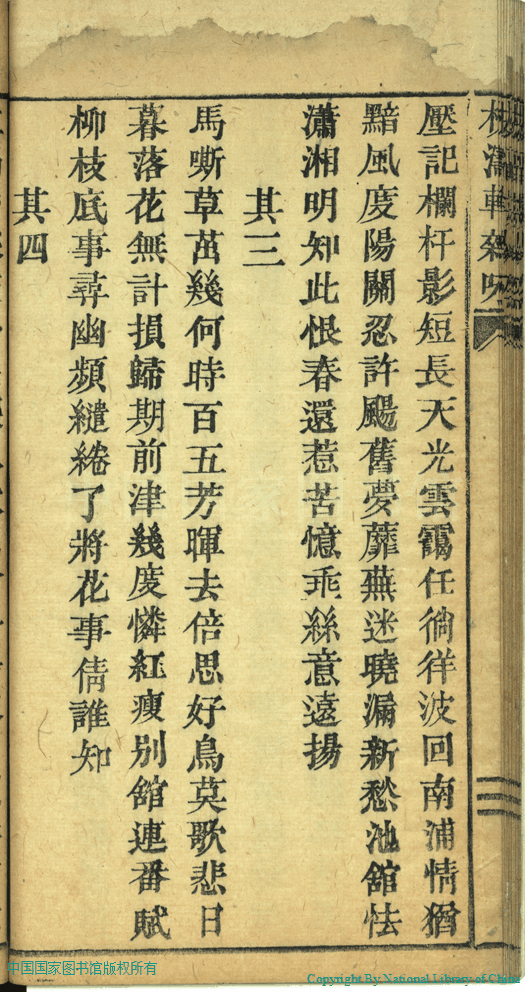 壓記欄杆影短長天光雲靄任徜徉波回南浦情猶
黯風度陽關忍許颺舊夢蘼蕪迷曉漏新愁池舘怯
瀟湘明知此恨春還惹苦憶乖絲意遠揚
其三
馬嘶草茁幾何時百五芳暉去倍思好鳥莫歌悲日
暮落花無計損歸期前津幾度憐紅瘦別舘連番賦
柳枝底事尋幽頻繾綣了將花事倩誰知
其四
中国国家图书馆版权所有
Copyright By National Library of China